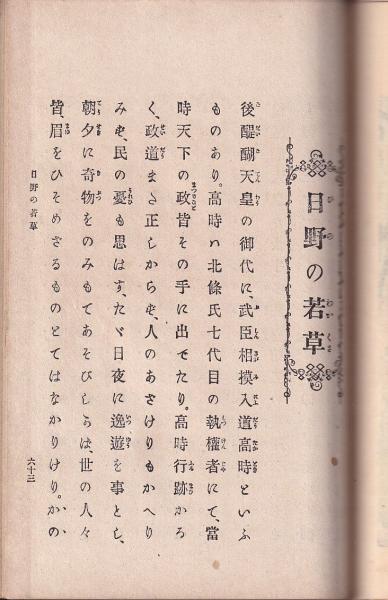 日野の若草
後醍醐天皇の御代に武臣相摸入道高時といふ
ものあり。高時ハ北條氏七代目の執權者にて、當
時天下の政皆その手に出でたり。高時行跡かろ
く、政道まさ正しからも、人のあさけりもかへり
みも、民の憂も思はす、たゞ日夜に逸遊を事とし、
朝夕に奇物をのみもてあそびしらは、世の人々
皆、眉をひそめさるものとてはなかりけり。かの
日野の若草
六十三